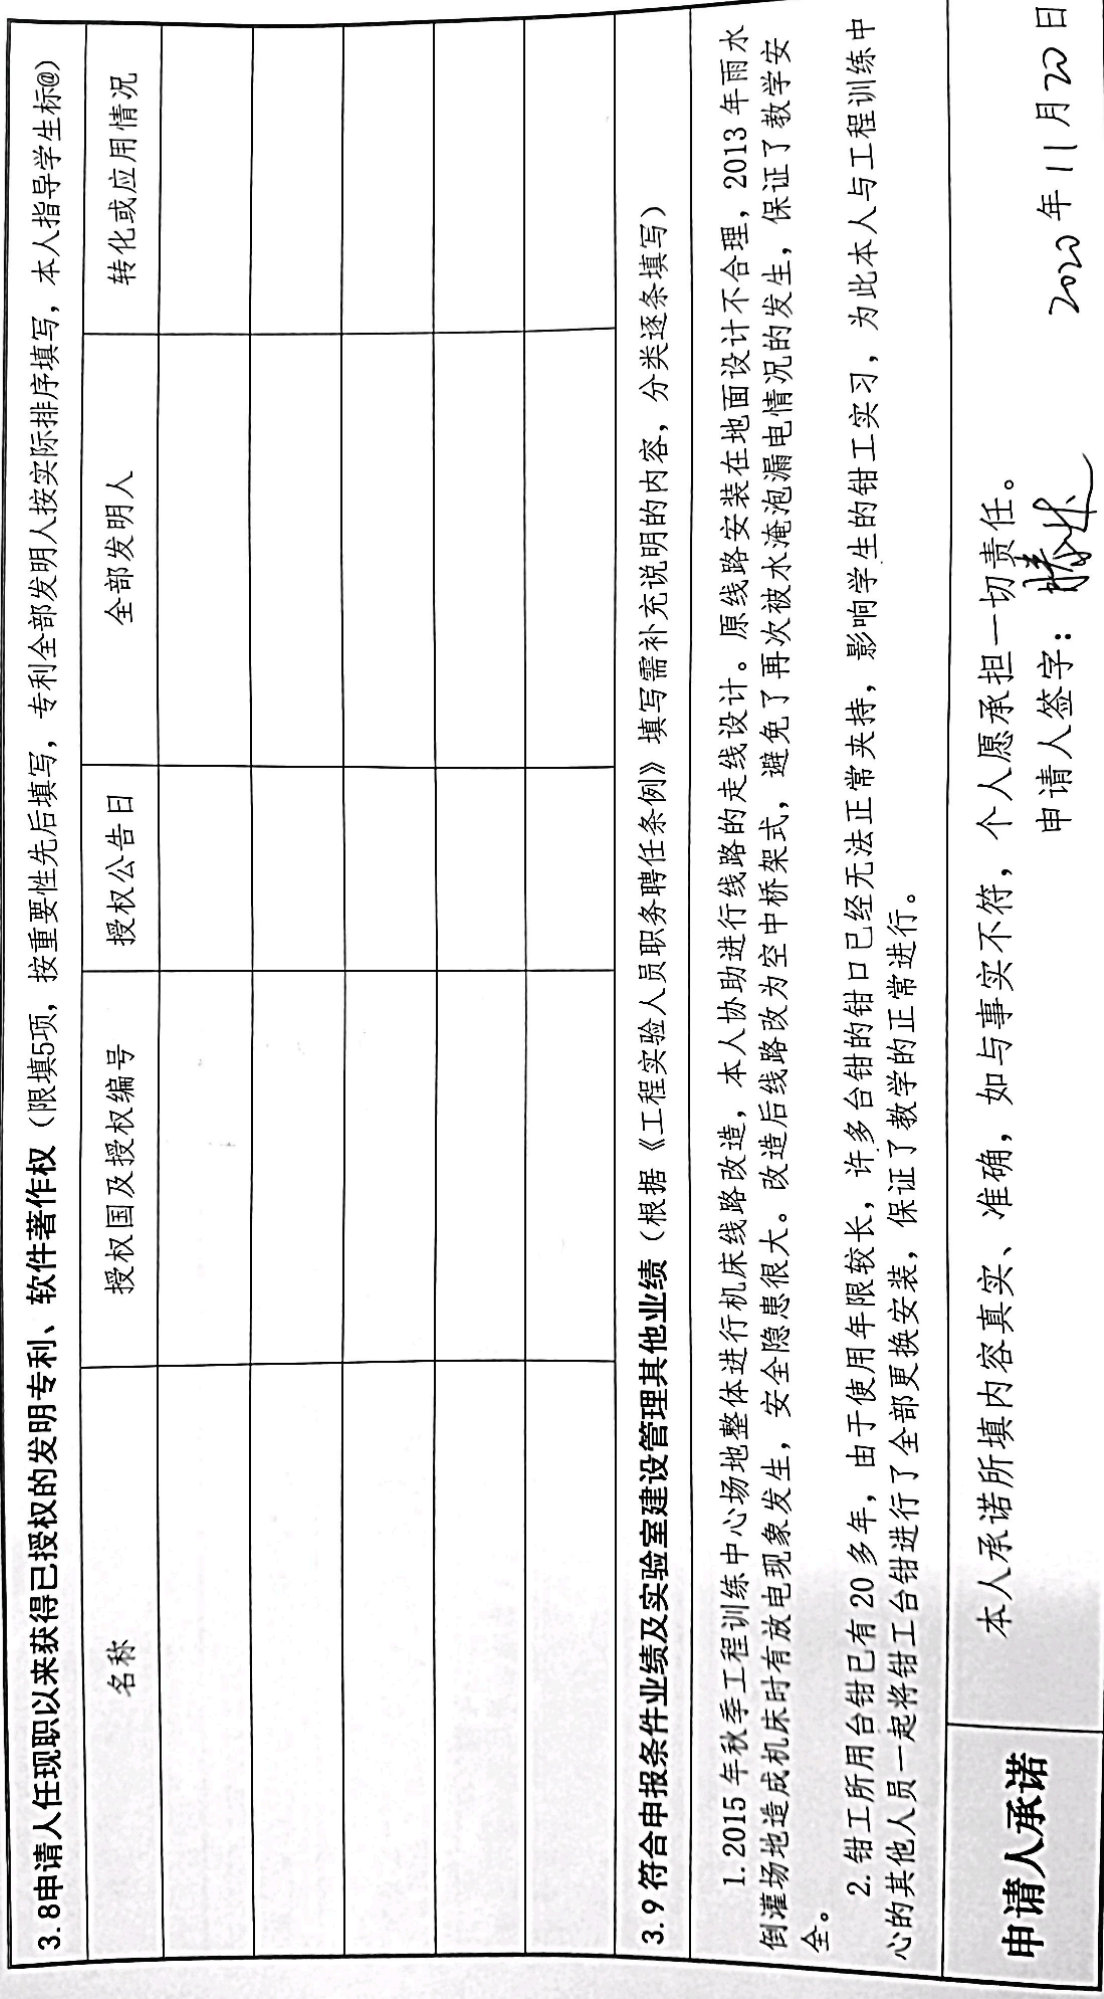 3.8申请人任现职以来获得已授权的发明专利、软件著作权（限填5项，按重要性先后填写，专利全部发明人按实际排序填写，本人指导学生标@）
名称 授权国及授权编号 授权公告日 全部发明人 转化或应用情况
3.9 符合申报条件业绩及实验室建设管理其他业绩（根据《工程实验人员职务聘任条例》填写需补充说明的内容，分类逐条填写）
1.2015 年秋季工程训练中心场地整体进行机床线路改造，本人协助进行线路的走线设计。原线路安装在地面设计不合理，2013 年雨水
倒灌场地造成机床时有放电现象发生，安全隐患很大。改造后线路改为空中桥架式，避免了再次被水淹泡漏电情况的发生，保证了教学安
全。
2.钳工所用台钳已有 20 多年，由于使用年限较长，许多台钳的钳口已经无法正常夹持，影响学生的钳工实习，为此本人与工程训练中
心的其他人员一起将钳工台钳进行了全部更换安装，保证了教学的正常进行。
申请人承诺
本人承诺所填内容真实、准确，如与事实不符，个人愿承担一切责任。
申请人签字：
2020 年 11 月 20 日